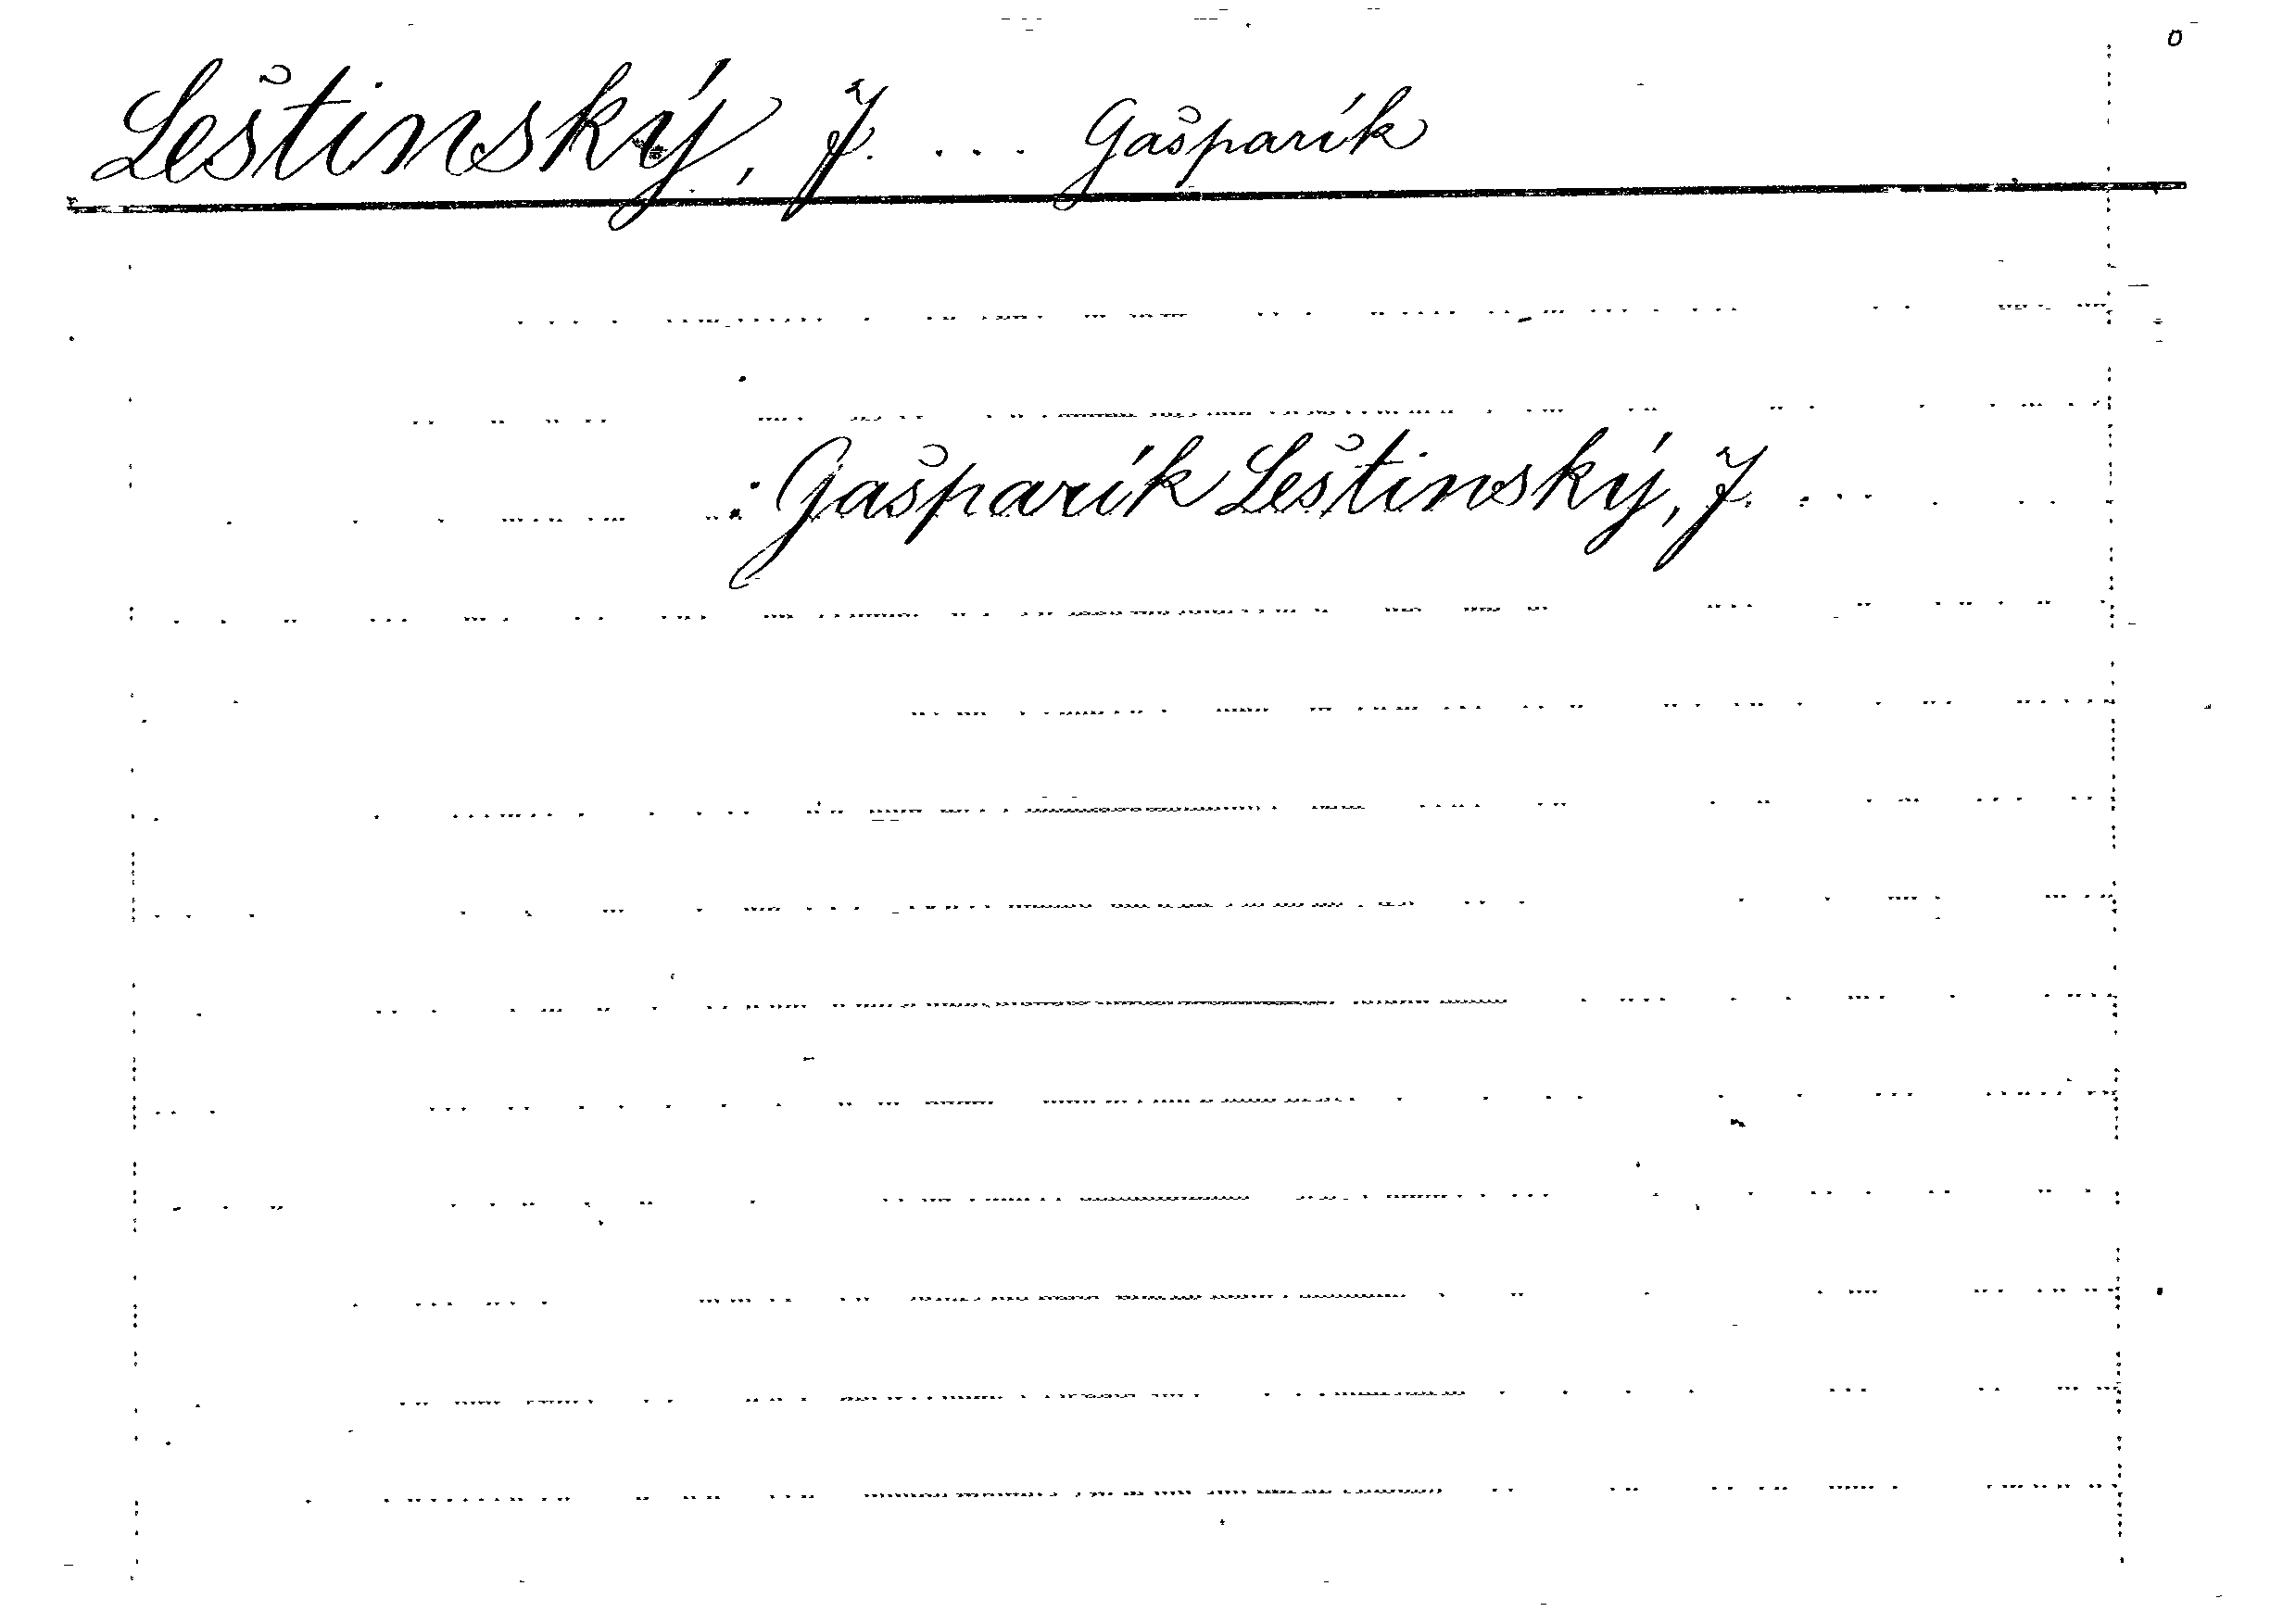 Leštinský, J. ... Gašparík
: Gašparík Leštinský, J. ...